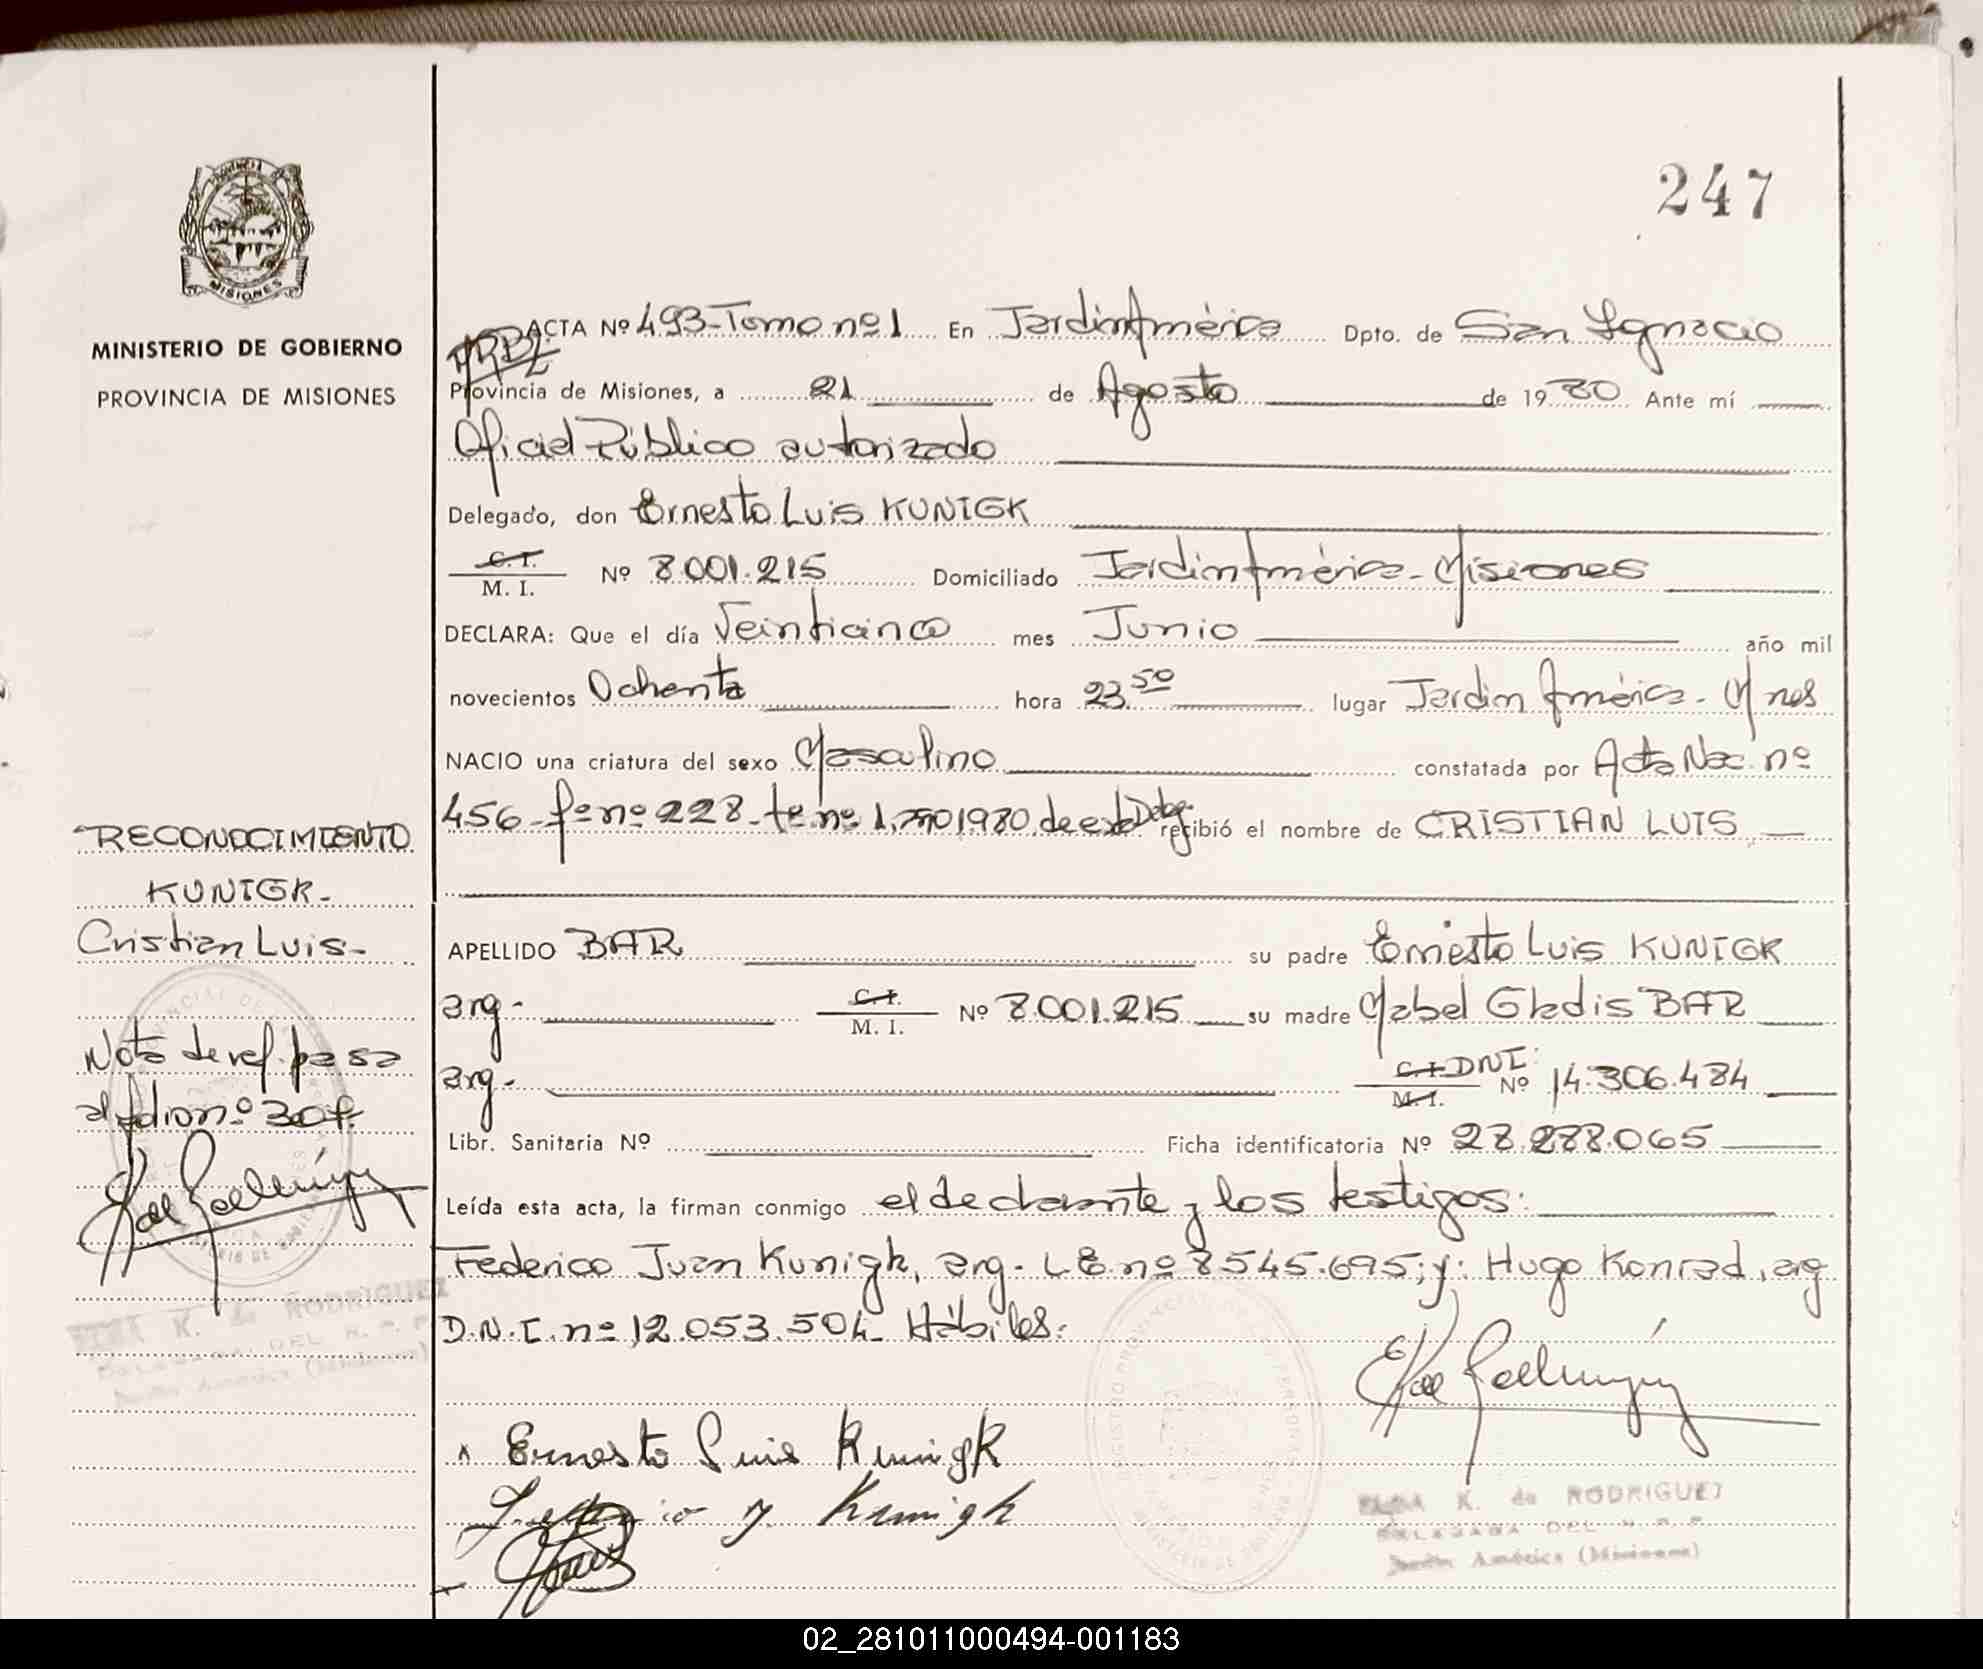 247
PROVINCIA
MISIONES
MINISTERIO DE GOBIERNO
PROVINCIA DE MISIONES
ACTA Nº 493-Tomo nº 1 En Jardín América Dpto. de San Ignacio
Provincia de Misiones, a 21 de Agosto de 1980 Ante mí
Oficial Público autorizado
Delegado, don Ernesto Luis KUNIGK
C. I.
M. I. Nº 8.001.215 Domiciliado Jardín América - Misiones
DECLARA: Que el día Veinticinco mes Junio año mil
novecientos Ochenta hora 23 50 lugar Jardín América - Mnes
NACIO una criatura del sexo Masculino constatada por Acta Nac. nº
456 - fº nº 228 - tº nº 1, año 1980, de esta Deleg. recibió el nombre de CRISTIAN LUIS
APELLIDO BAR su padre Ernesto Luis KUNIGK
arg - C. I. M. I. Nº 8.001.215 su madre Mabel Gladis BAR
arg - C. I. DNI. M. I. Nº 14.306.484
Libr. Sanitaria Nº Ficha identificatoria Nº 28.288.065
Leída esta acta, la firman conmigo el declarante y los testigos:
Federico Juan Kunigk, arg. L E nº 8545.695; y: Hugo Konrad, arg
D.N.I. nº 12.053.504 - Hábiles:
Ernesto Luis Kunigk
Federico J. Kunigk
K. de RODRIGUEZ
DELEGADA DEL R. P. P.
Jardín América (Misiones)
RECONOCIMIENTO
KUNIGK -
Cristian Luis -
Nota de ref. pasa
al folio nº 307.
K. de RODRIGUEZ
DELEGADA DEL R. P. P.
Jardín América (Misiones)
02_281011000494-001183